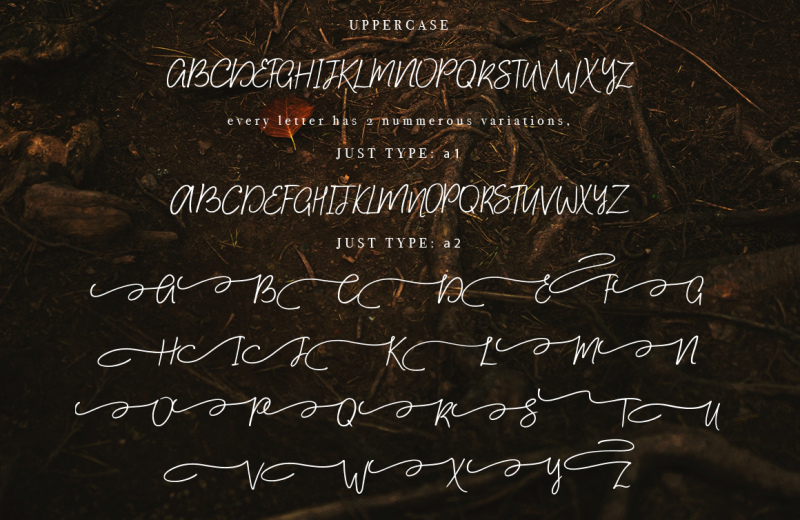 UPPERCASE
ABCDEFGHIJKLMNOPQRSTUVWXYZ
every letter has 2 nummerous variations,
JUST TYPE: a1
ABCDEFGHIJKLMNOPQRSTUVWXYZ
JUST TYPE: a2
A B C D E F G
H I J K L M N
O P Q R S T U
V W X Y Z